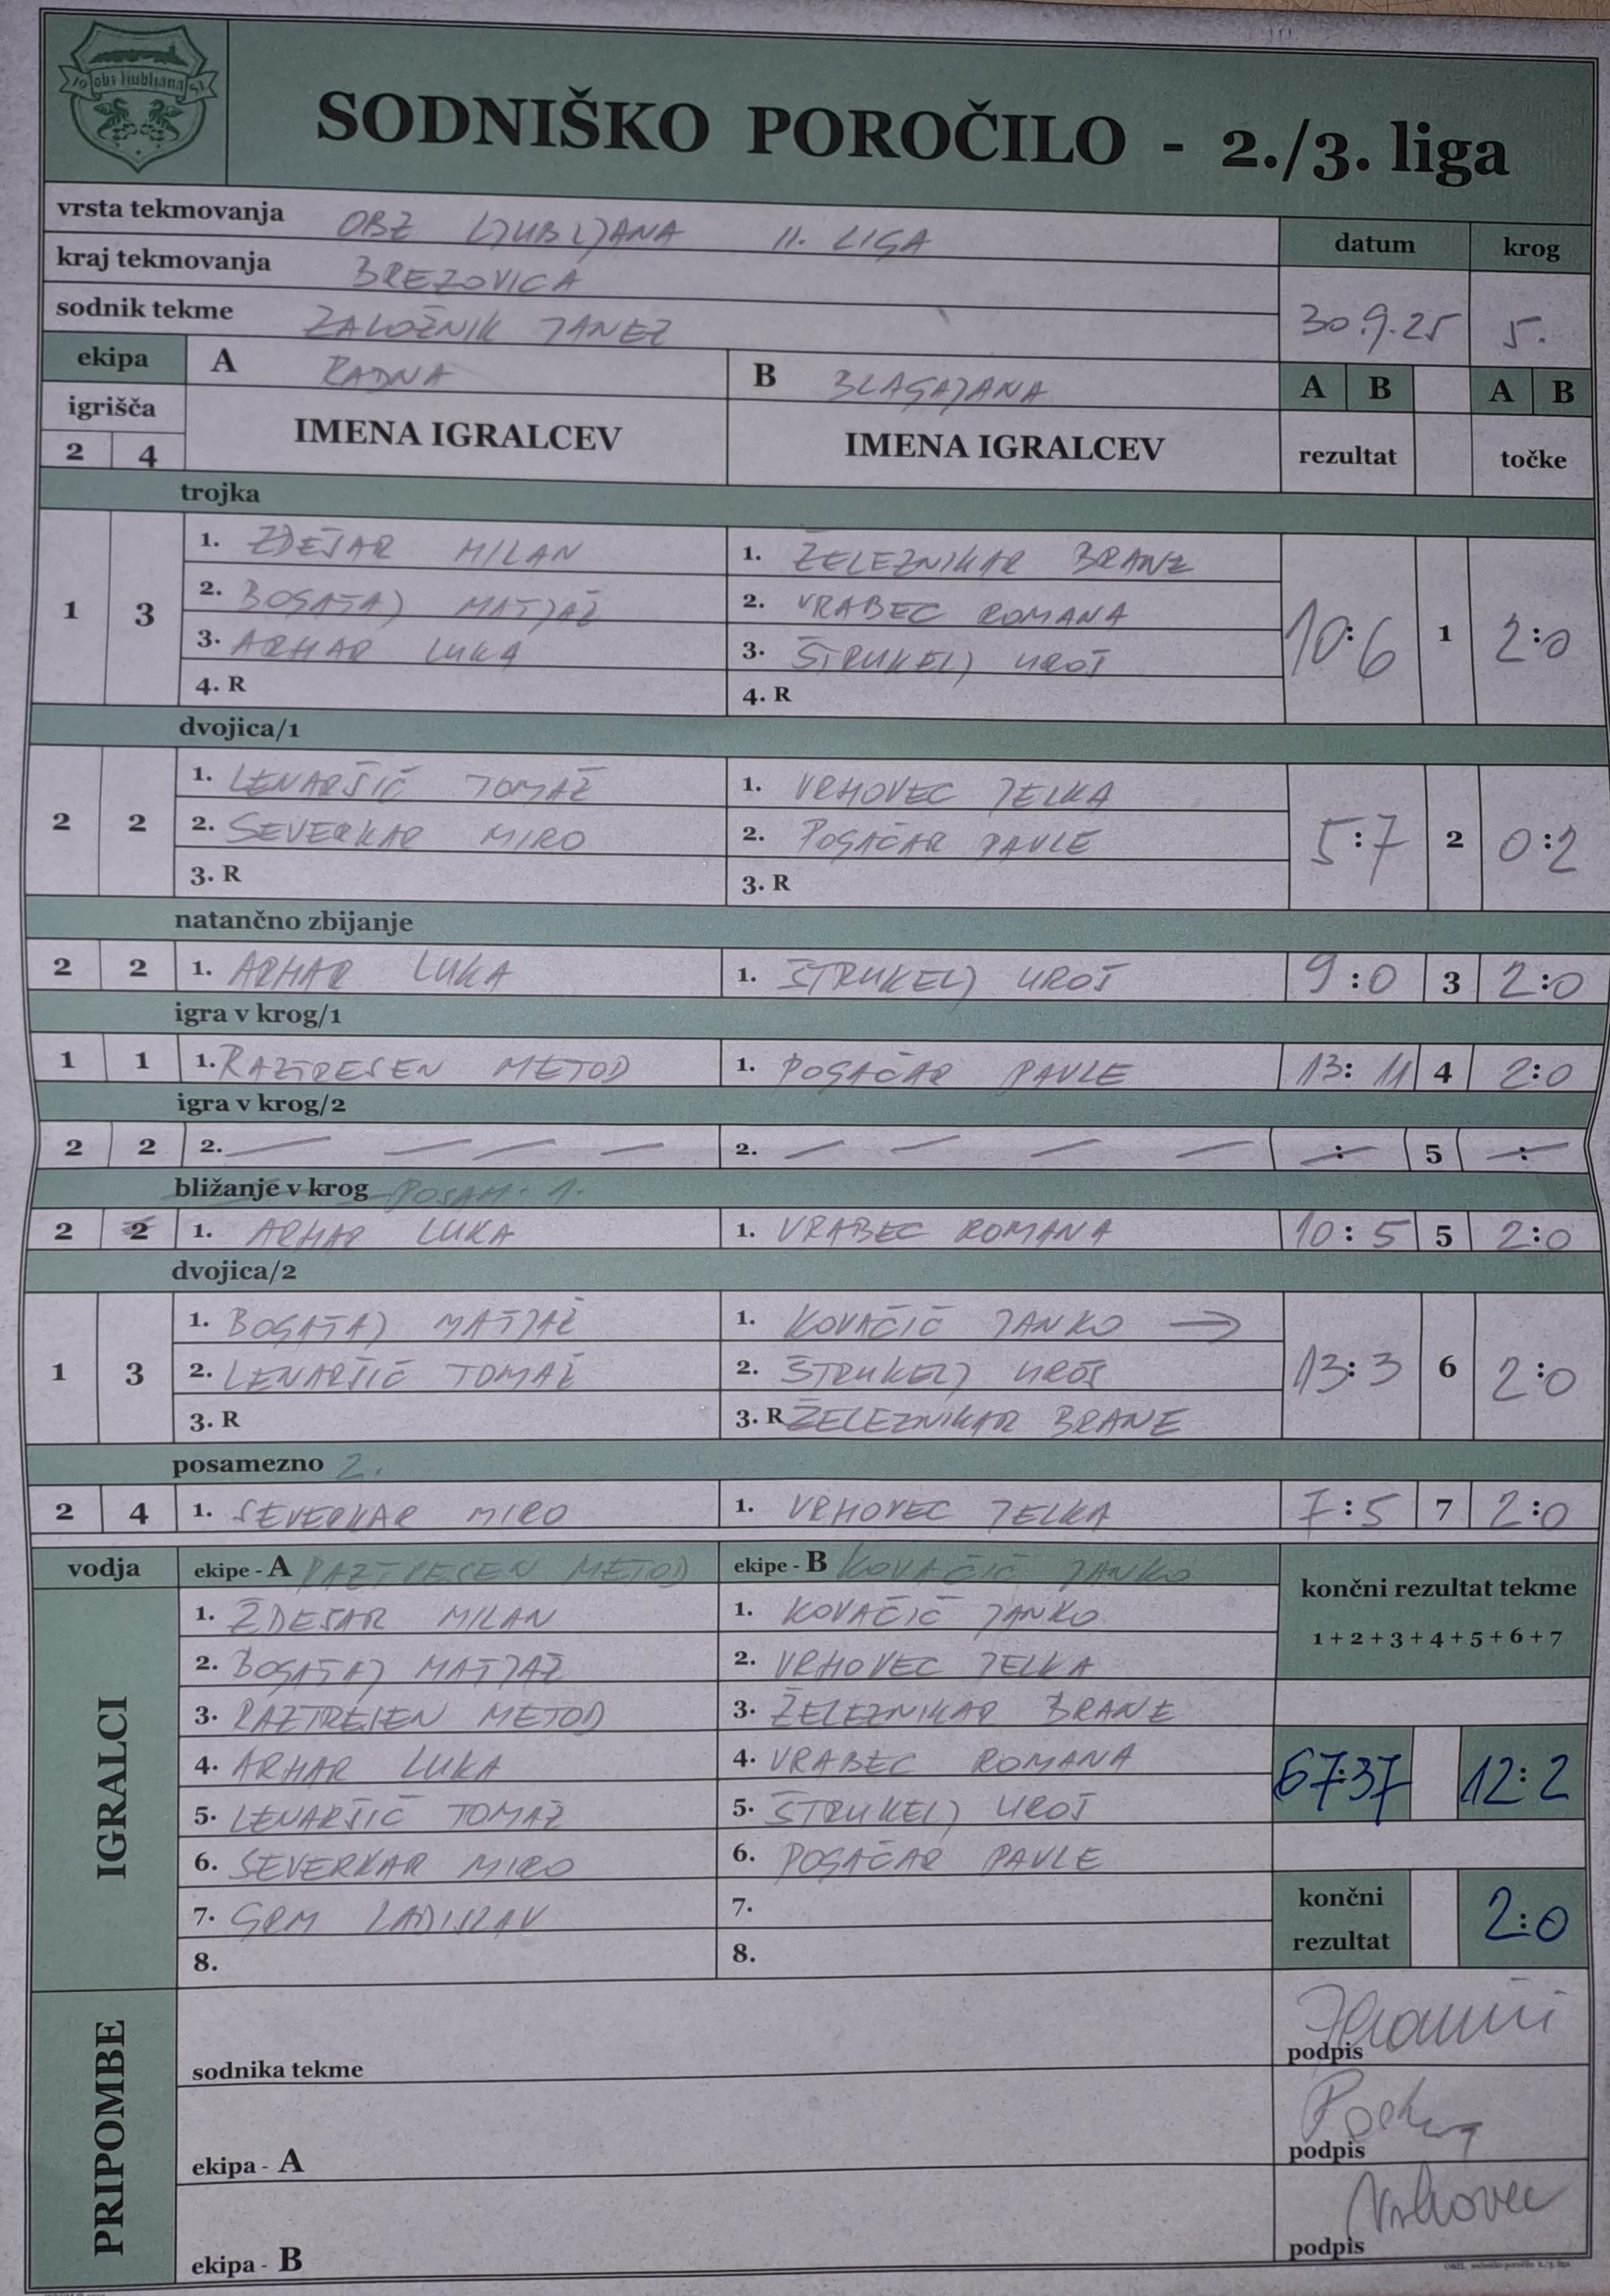 19 obz ljubljana 51
SODNIŠKO POROČILO - 2./3. liga
vrsta tekmovanja OBZ LJUBLJANA II. LIGA datum krog
kraj tekmovanja BREZOVICA
sodnik tekme ZALOŽNIK JANEZ 30.9.25 5.
ekipa A RADNA B BLAGAJANA A B A B
igrišča IMENA IGRALCEV IMENA IGRALCEV rezultat točke
2 4
trojka
1. ZDEŠAR MILAN 1. ŽELEZNIKAR BRANE
2. BOGATAJ MATJAŽ 2. VRABEC ROMANA
1 3 3. ARHAR LUKA 3. ŠTRUKELJ UROŠ 10:6 1 2:0
4. R 4. R
dvojica/1
1. LENARŠIČ TOMAŽ 1. VRHOVEC JELKA
2 2 2. SEVERKAR MIRO 2. POGAČAR PAVLE 5:7 2 0:2
3. R 3. R
natančno zbijanje
2 2 1. ARHAR LUKA 1. ŠTRUKELJ UROŠ 9:0 3 2:0
igra v krog/1
1 1 1. RAZTRESEN METOD 1. POGAČAR PAVLE 13:11 4 2:0
igra v krog/2
2 2 2. — — — — 2. — — — — : 5 :
bližanje v krog POSAM. 1.
2 2 1. ARHAR LUKA 1. VRABEC ROMANA 10:5 5 2:0
dvojica/2
1. BOGATAJ MATJAŽ 1. KOVAČIČ JANKO →
1 3 2. LENARŠIČ TOMAŽ 2. ŠTRUKELJ UROŠ 13:3 6 2:0
3. R 3. R ŽELEZNIKAR BRANE
posamezno 2.
2 4 1. SEVERKAR MIRO 1. VRHOVEC JELKA 7:5 7 2:0
vodja ekipe - A RAZTRESEN METOD ekipe - B KOVAČIČ JANKO
končni rezultat tekme
1 + 2 + 3 + 4 + 5 + 6 + 7
IGRALCI
1. ZDEŠAR MILAN 1. KOVAČIČ JANKO
2. BOGATAJ MATJAŽ 2. VRHOVEC JELKA
3. RAZTRESEN METOD 3. ŽELEZNIKAR BRANE
4. ARHAR LUKA 4. VRABEC ROMANA 67:37 12:2
5. LENARŠIČ TOMAŽ 5. ŠTRUKELJ UROŠ
6. SEVERKAR MIRO 6. POGAČAR PAVLE
7. GRM LADISLAV 7. končni rezultat 2:0
8. 8.
PRIPOMBE
sodnika tekme podpis
ekipa - A podpis
ekipa - B podpis Vrhovec